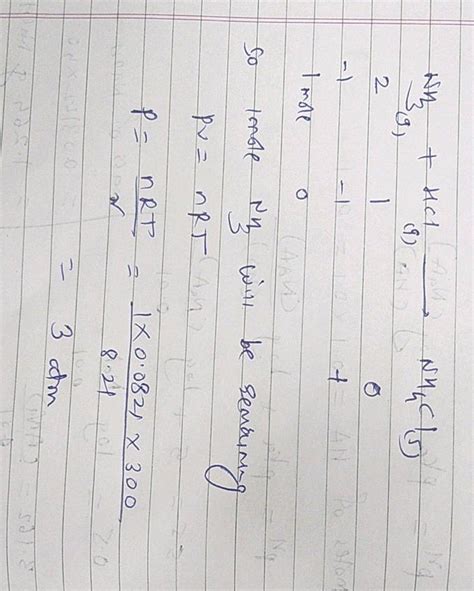 NH3(g) + HCl(g) → NH4Cl(s)
2 1 0
-1 -1 +
1 mole 0
So 1mole NH3 will be remaining
PV = nRT
P = nRT/V = 1 × 0.0821 × 300/8.21
= 3 atm